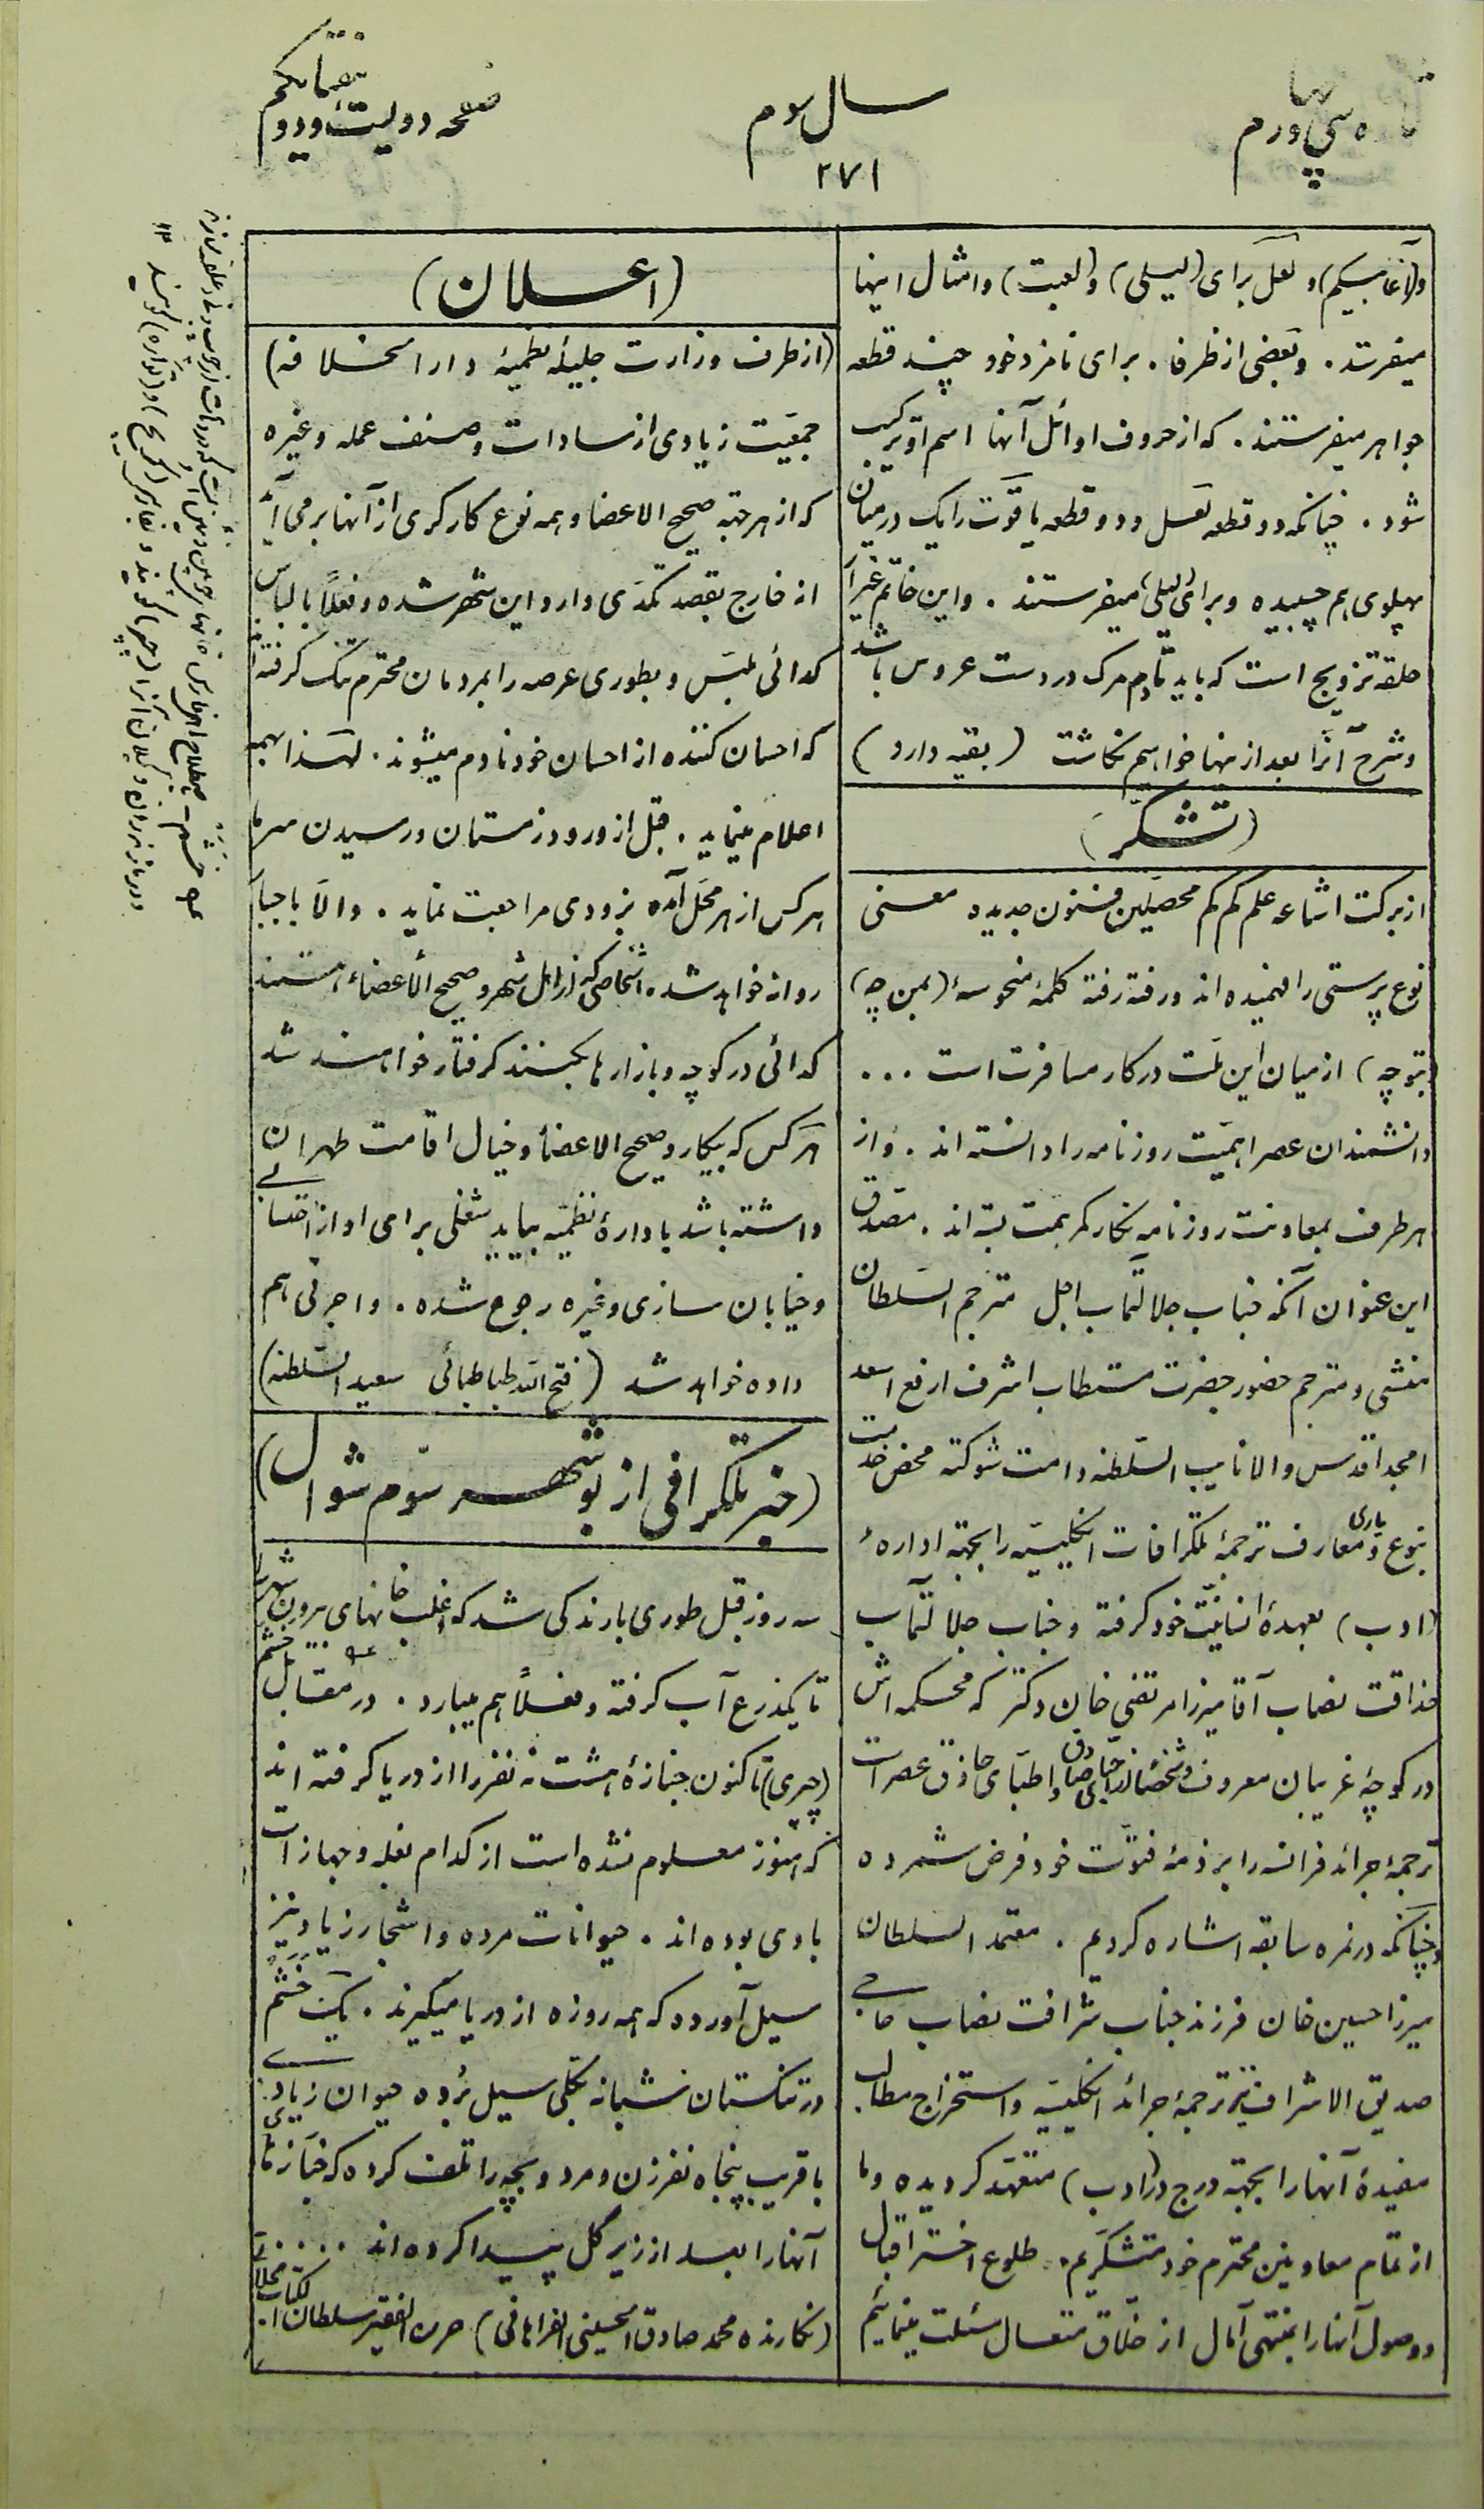 سال سوم
۲۷۱
صفحه دویست و
و(آغابیکم) و لعل برای (لیلی) و(لعبت) و امثال اینها
میفرستد . و بعضی از ظرفا . برای نامزد خود چند قطعه
جواهر میفرستند . که از حروف اوائل آنها اسم او ترکیب
شود . چنانکه دو قطعه لعل و دو قطعه یاقوت را یک درمیان
پهلوی هم چسبیده و برای لیلی میفرستند . و این خاتم غیر از
حلقه تزویج است که باید تا دم مرک در دست عروس باشد
و شرح آنرا بعد از اینها خواهیم نکاشت ( بقیه دارد )
(تشکر)
از برکت اشاعه علم کم کم محصلین فنون جدیده معنی
نوع پرستی را فهمیده اند و رفته رفته کلمهٔ منحوسهٔ (بمن چه)
(بتو چه) از میان این ملت در کار مسافرت است ...
دانشمندان عصر اهمیت روزنامه را دانسته اند . و از
هر طرف بمعاونت روزنامه نکار کمر همت بسته اند . مصدق
این عنوان آنکه جناب جلالتمآب اجل مترجم السلطان
منشی و مترجم حضور حضرت مستطاب اشرف ارفع اسعد
امجد اقدس والا نایب السلطنه دامت شوکته محض خدمت
بنوع و یاری معارف ترجمهٔ تلکرافات انکلیسیه را بجهته ادارهٔ
(ادب) بعهدهٔ انسانیت خود کرفته و جناب جلالتمآب
حذاقت نصاب آقا میرزا مرتضی خان دکتر که محکمه اش
در کوچهٔ غریبان معروف و شخصاً از احبای صادق و اطبای حاذق عصر است
ترجمهٔ جرائد فرانسه را بر ذمهٔ فتوت خود فرض شمرده
و چنانکه در نمره سابقه اشاره کردیم . معتمد السلطان
میرزا حسین خان فرزند جناب شرافت نصاب حاجی
صدیق الاشراف نیز ترجمهٔ جرائد انکلیسیه و استخراج مطالب
مفیدهٔ آنها را بجهته درج در (ادب) متعهد کردیده و ما
از تمام معاونین محترم خود متشکریم . طلوع اختر اقبال
و وصول آنها را بمنتهی آمال از خلاق متعال مسئلت مینمائیم
(اعلان)
(از طرف وزارت جلیلهٔ نظمیهٔ دار الخلافه)
جمعیت زیادی از سادات و صنف عمله و غیره
که از هر جهته صحیح الاعضا و همه نوع کارکری از آنها بر می آید
از خارج بقصد تکدی وارد این شهر شده و فعلاً بالباس
کدائی ملبس و بطوری عرصه را بمردمان محترم تنک کرفته اند
که احسان کننده از احسان خود نادم میشوند . لهذا بهمه
اعلام مینماید . قبل از ورود زمستان و رسیدن سرما
هر کس از هر محل آمده بزودی مراجعت نماید . والا باجبار
روانه خواهد شد . اشخاصی که از اهل شهر و صحیح الاعضاء هستند
کدائی در کوچه و بازارها بکنند کرفتار خواهند شد
هر کس که بیکار و صحیح الاعضا و خیال اقامت طهران
داشته باشد باداره نظمیه بیاید شغلی برای او از
و خیابان سازی و غیره رجوع شده . و اجرتی هم
داده خواهد شد (فتح الله طباطبائی سعید السلطنه)
(خبر تلکرافی از بوشهر سوم شوال)
سه روز قبل طوری بارندکی شد که اغلب خانهای بیرون شهر را
تا یکذرع آب کرفته و فعلاً هم میبارد . در مقابل خشم
(چری) تا کنون جنازهٔ هشت نه نفر را از دریا کرفته اند
که هنوز معلوم نشده است از کدام بغله و جهازات
بادی بوده اند . حیوانات مرده و اشجار زیاد نیز
سیل آورده که همه روزه از دریا میکیرند . یک خشم
در تنکستان شبانه بکلی سیل برده حیوان زیادی
با قریب پنجاه نفر زن و مرد و بچه را تلف کرده که جنازهای
آنها را بعد از زیر گل پیدا کرده اند ....
(نکارنده محمد صادق الحسینی الفراهانی) حرره الفقیر سلطان الکتاب